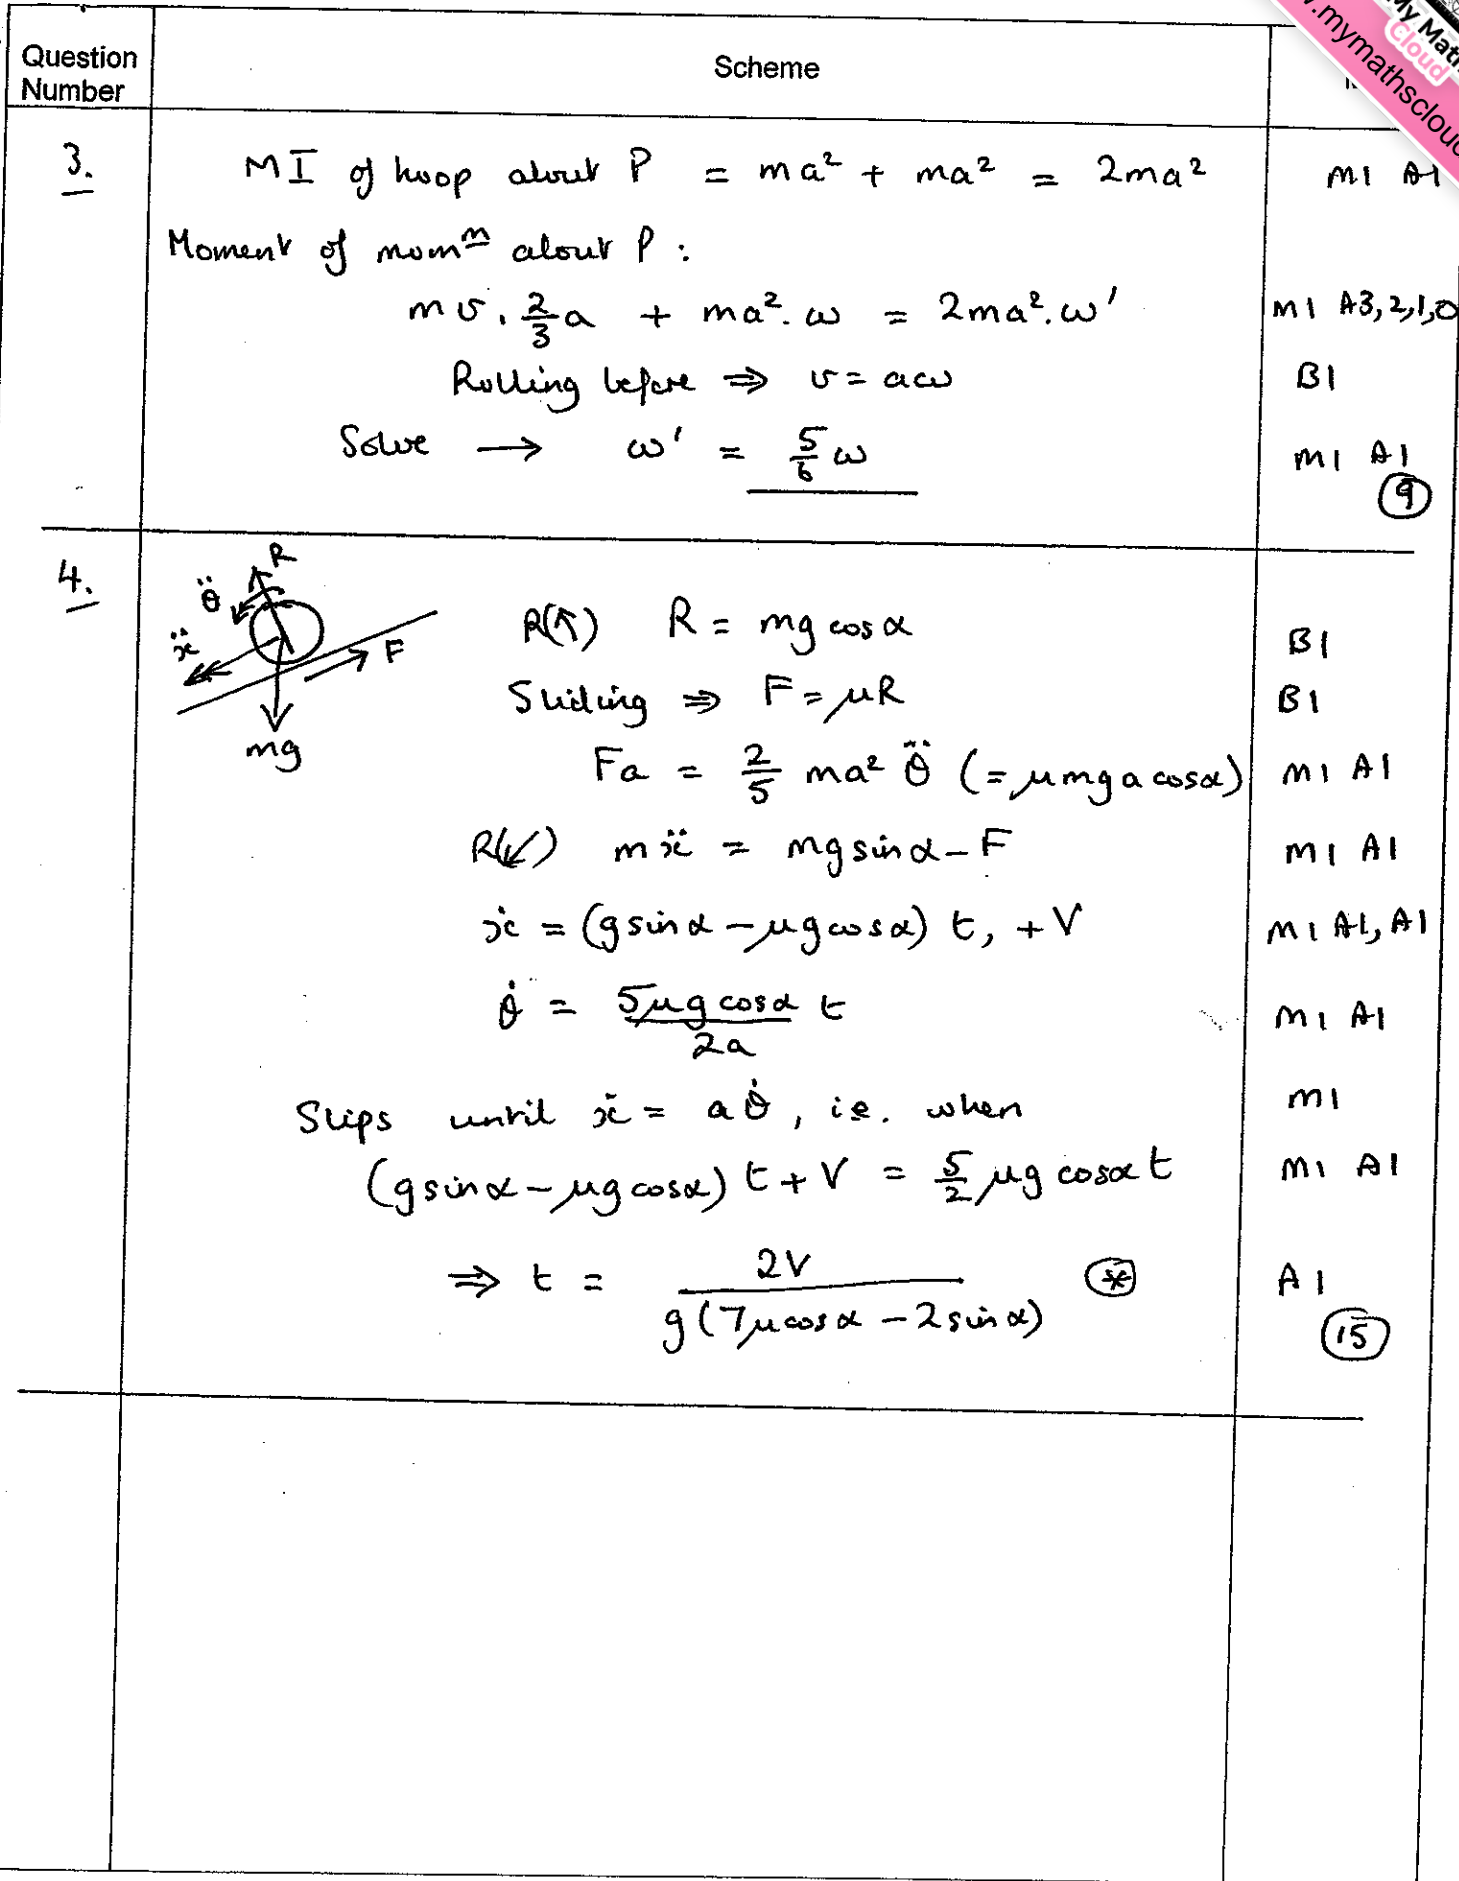 Question Number
Scheme
My Maths Cloud
.mymathscloud
3.
MI of hoop about P = ma² + ma² = 2ma² M1 A1
Moment of mom^m about P :
mv. 2/3 a + ma². ω = 2ma². ω' M1 A3,2,1,0
Rolling before ⇒ v = aω B1
Solve → ω' = 5/6 ω M1 A1
9
4.
R
θ̈
ẍ
F
mg
R(↖) R = mg cos α B1
Sliding ⇒ F = μR B1
Fa = 2/5 ma² θ̈ (= μmga cosα) M1 A1
R(↙) mẍ = mg sin α – F M1 A1
ẋ = (g sin α – μg cos α) t, + V M1 A1, A1
θ̇ = 5μg cosα/2a t M1 A1
Slips until ẋ = aθ̇, i.e. when M1
(g sin α – μg cosα) t + V = 5/2 μg cosα t M1 A1
⇒ t = 2V/g(7μcos α – 2 sin α) ✳ A1
15